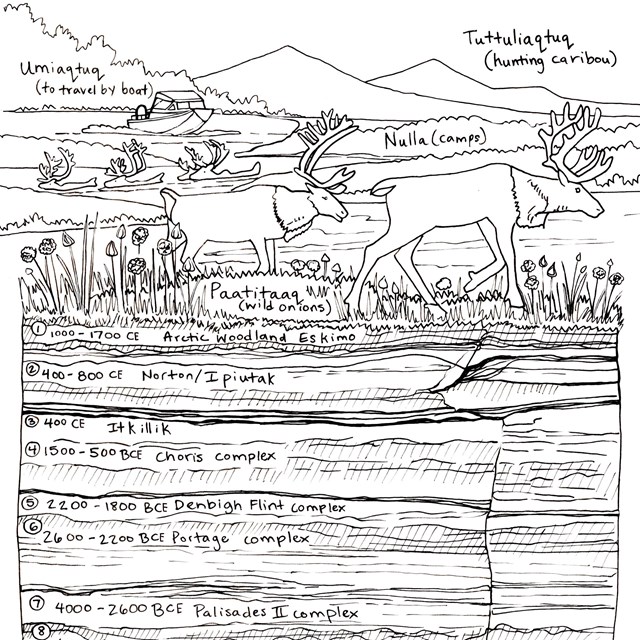 Tuttuliaqtuq
(hunting caribou)
Umiaqtuq
(to travel by boat)
Nulla (camps)
Paatitaaq
(wild onions)
① 1000-1700 CE Arctic Woodland Eskimo
② 400-800 CE Norton/Ipiutak
③ 400 CE Itkillik
④ 1500-500 BCE Choris complex
⑤ 2200-1800 BCE Denbigh Flint complex
⑥ 2600-2200 BCE Portage complex
⑦ 4000-2600 BCE Palisades II complex
⑧